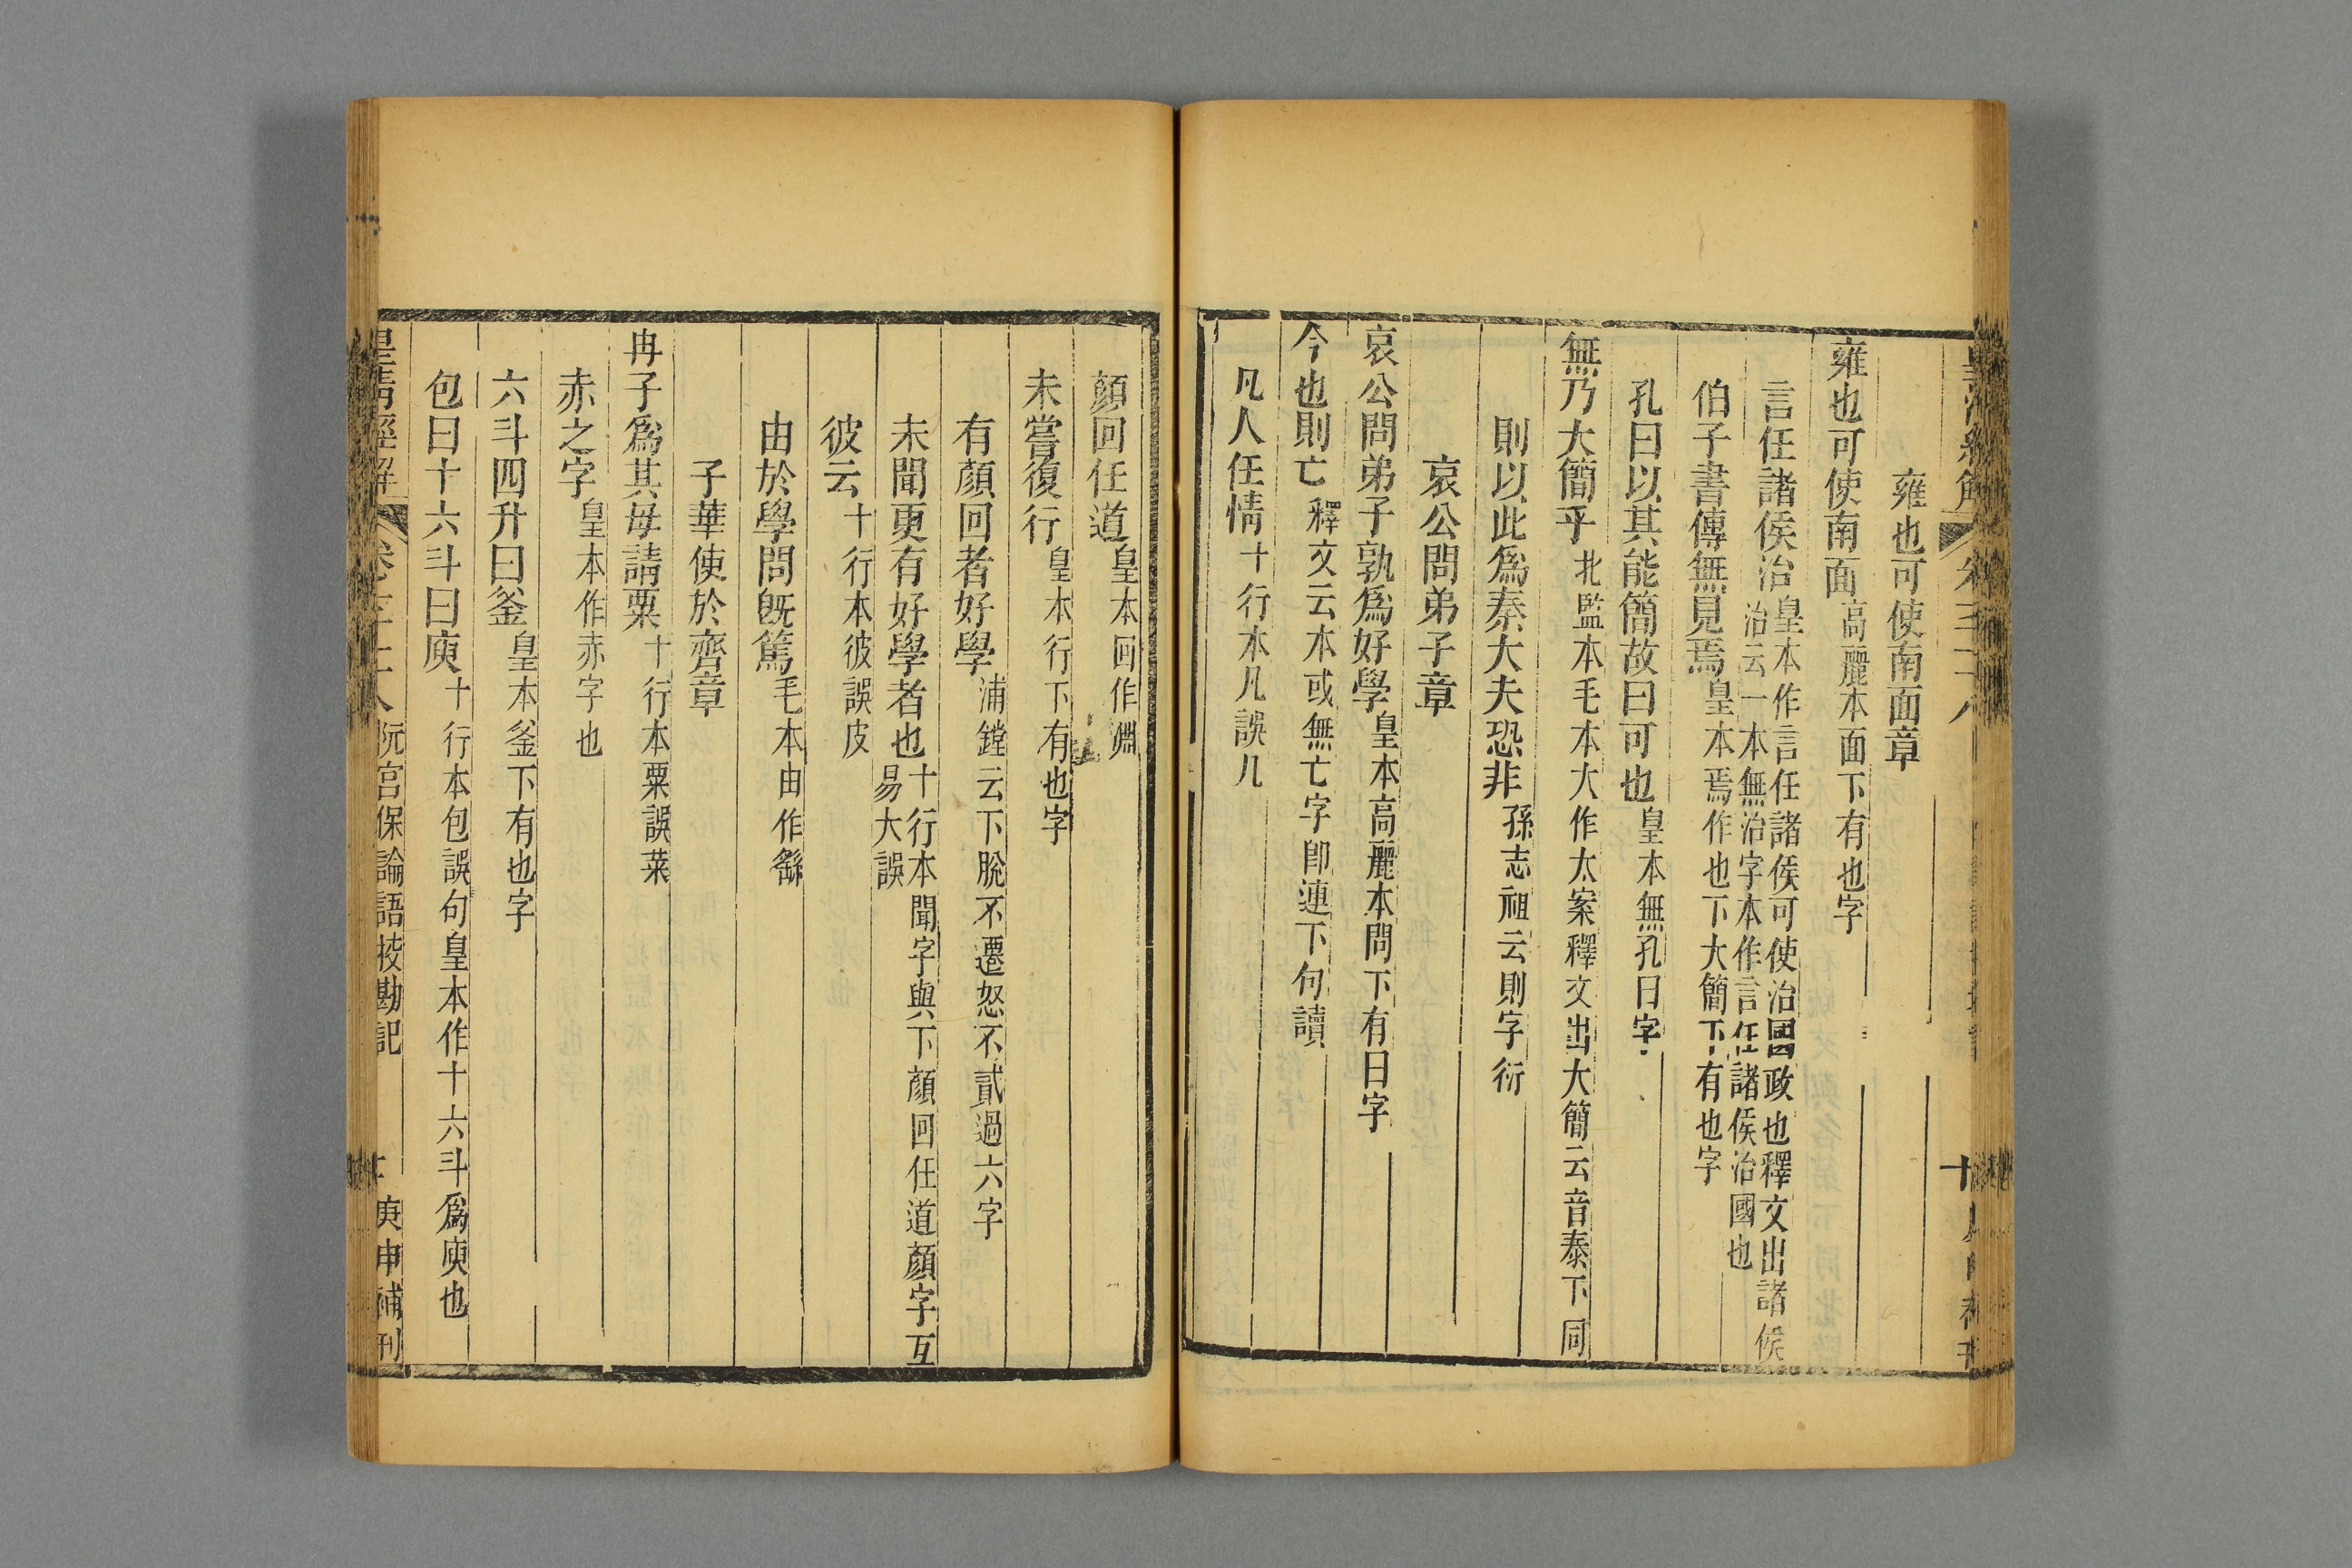 雍也可使南面章
雍也可使南面高麗本面下有也字
言任諸侯治皇本作言任諸侯可使治國政也釋文出諸侯
治云一本無治字本作言任諸侯治國也
伯子書傳無見焉皇本焉作也下大簡下有也字
孔曰以其能簡故曰可也皇本無孔曰字
無乃大簡乎北監本毛本大作太案釋文出大簡云音泰下同
則以此爲秦大夫恐非孫志祖云則字衍
哀公問弟子章
哀公問弟子孰爲好學皇本高麗本問下有曰字
今也則亡釋文云本或無亡字卽連下句讀
凡人任情十行本凡誤几
顏回任道皇本回作淵
未嘗復行皇本行下有也字
有顏回者好學浦鏜云下脫不遷怒不貳過六字
未聞更有好學者也十行本聞字與下顏回任道顏字互
易大誤
彼云十行本彼誤皮
由於學問旣篤毛本由作繇
子華使於齊章
冉子爲其母請粟十行本粟誤菜
赤之字皇本作赤字也
六斗四升曰釜皇本釜下有也字
包曰十六斗曰庾十行本包誤句皇本作十六斗爲庾也
皇清經解 卷千十八 阮宮保論語挍勘記 庚申補刊